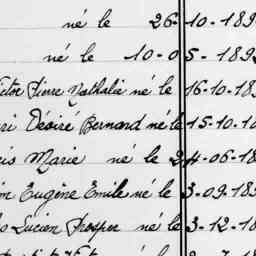 né le 26-10-189
né le 10-05-189
ctor Pierre Nathalie né le 16-10-18
ri Désiré Bernard né le 15-10-1
is Marie né le 24-06-18
Eugène Emile né le 3-09-18
Lucien Prosper né le 3-12-18